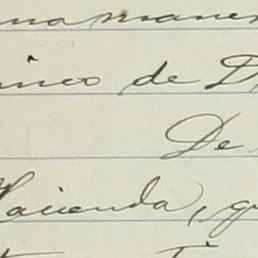 una maner
inco de D
De
Hacienda, qu